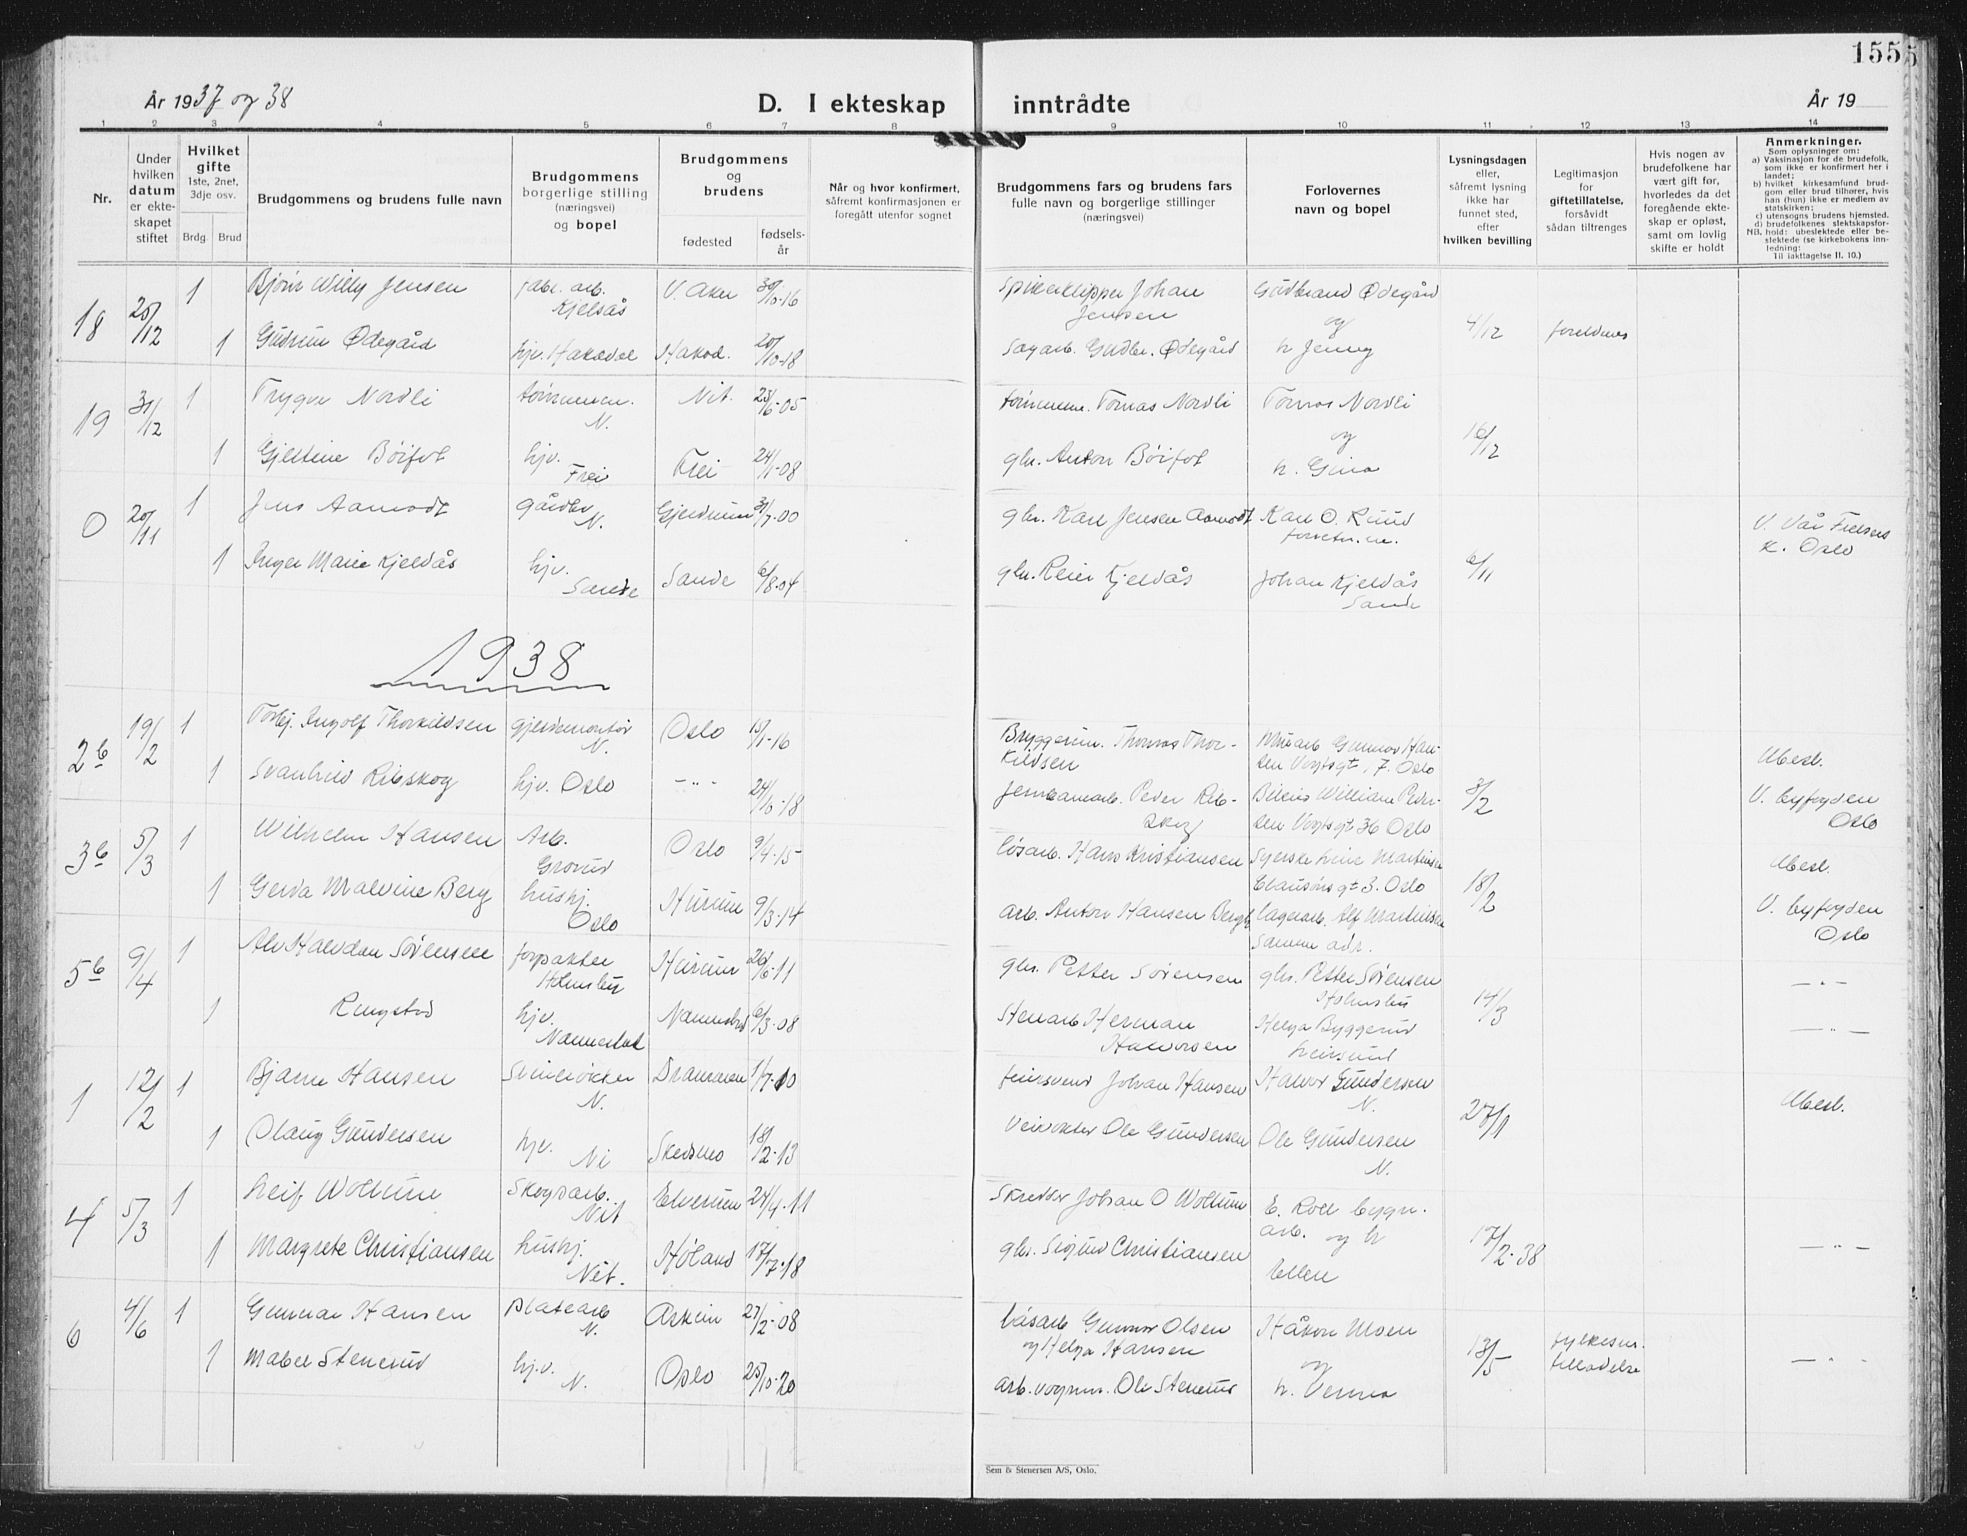 155
År 1937 og 38
D. I ekteskap inntrådte
År 19
1 2 3 4 5 6 7 8 9 10 11 12 13 14
Nr.
Under hvilken datum er ekteskapet stiftet
Hvilket gifte
1ste, 2net, 3dje osv.
Brdg. Brud
Brudgommens og brudens fulle navn
Brudgommens borgerlige stilling (næringsvei) og bopel
Brudgommens og brudens
fødested
fødselsår
Når og hvor konfirmert, såfremt konfirmasjonen er foregått utenfor sognet
Brudgommens fars og brudens fars fulle navn og borgerlige stillinger (næringsvei)
Forlovernes navn og bopel
Lysningsdagen eller, såfremt lysning ikke har funnet sted, efter hvilken bevilling
Legitimasjon for giftetillatelse, forsåvidt sådan tiltrenges
Hvis nogen av brudefolkene har vært gift før, hvorledes da det foregående ekteskap er opløst, samt om lovlig skifte er holdt
Anmerkninger.
Som oplysninger om:
a) Vaksinasjon for de brudefolk, som ikke er konfirmert her i landet;
b) hvilket kirkesamfund brudgom eller brud tilhører, hvis han (hun) ikke er medlem av statskirken;
c) utensogns brudens hjemsted.
d) brudefolkenes slektskapsforhold: ubeslektede eller beslektede (se kirkebokens innledning:
NB.
Til iakttagelse II. 10.)
18 20/12 1 Bjørn Willy Jensen fabr. arb. Kjelsås V. Aker 30/10-16 Spikerklipper Johan Jensen Gudbrand Ødegård og
1 Gudrun Ødegård hjv. Hakadal Hakad. 20/10-18 Sagarb. Gudbr. Ødegård h. Jenny 4/12 foreldres
19 31/12 1 Trygve Nordli tømmerm. N. Nit. 23/6-05 tømmerm. Tomas Nordli Tomas Nordli og
1 Gjertine Böifot hjv. Frei Frei 24/1-08 gbr. Anton Böifot h. Gina 16/12
0 20/11 1 Jens Aamodt gårdbr N. Gjerdrum 31/7-00 gbr. Karl Jensen Aamodt Karl O. Ruud V. Vår Frelsers k. Oslo
1 Inger Marie Kjeldås hjv. Sande Sande 6/8-04 gbr. Reier Kjeldås Johan Kjeldås Sande 6/11
1938
2b 19/2 1 Torbj. Ingolf Thorkildsen gjerdemontör N. Oslo 15/1-16 Bryggerim. Thomas Thorkildsen Gunnar Hansen Vogtsgt. 7. Oslo Ubesl.
1 Svanhild Ribskog hjv. Oslo -"- 24/10-18 Jernbanearb. Peder Ribskog William Pedersen Vogtsgt 36 Oslo 3/2 V. byfogden Oslo
3b 5/3 1 Wilhelm Hansen Arb. Grorud Oslo 9/4-15 lösarb. Hans Kristiansen Syerske Line Martinsen Clausönsgt 3. Oslo Ubesl.
1 Gerda Malvine Berg hushj. Oslo Hurum 9/3-14 arb. Anton Hansen Berg lagerarb. Alf Martinsen samme adr. 18/2 V. byfogden Oslo
5b 9/4 1 Alv Halvdan Sörensen forpakter Holmsbu Hurum 26/6-11 gbr. Petter Sörensen gbr. Petter Sörensen Holmsbu -"-
1 Ringstad hjv. Nannestad Nannestad 6/3-08 Stenarb Herman Halvorsen Helga Byggerud Leirsund 14/3 -"-
1 12/2 1 Bjarne Hansen Svinerökter N. Drammen 1/7-10 Johan Hansen Halvor Gundersen N. Ubesl.
1 Olaug Gundersen hjv. Ni Skedsmo 18/2-13 Veivokter Ole Gundersen Ole Gundersen N. 27/1
4 5/3 1 Leif Wollum Skogsarb. Nit Elverum 24/4-11 Skredder Johan O Wollum E. Roll bygn. arb. og h
1 Margrete Christiansen hushj. Nit. Höland 17/7-18 gbr. Sigurd Christiansen Ellen 17/2-38 -"-
6 4/6 1 Gunnar Hansen platearb N. Askim 27/2-08 lösarb Gunnar Olsen og Helga Hansen Håkon Moen og fylkesm. tilladelse
1 Mabel Stenerud hjv. N. Oslo 25/10-20 arb. vognm. Ole Stenerud h. Verna 13/5 -"-
Sem & Stenersen A/S, Oslo.